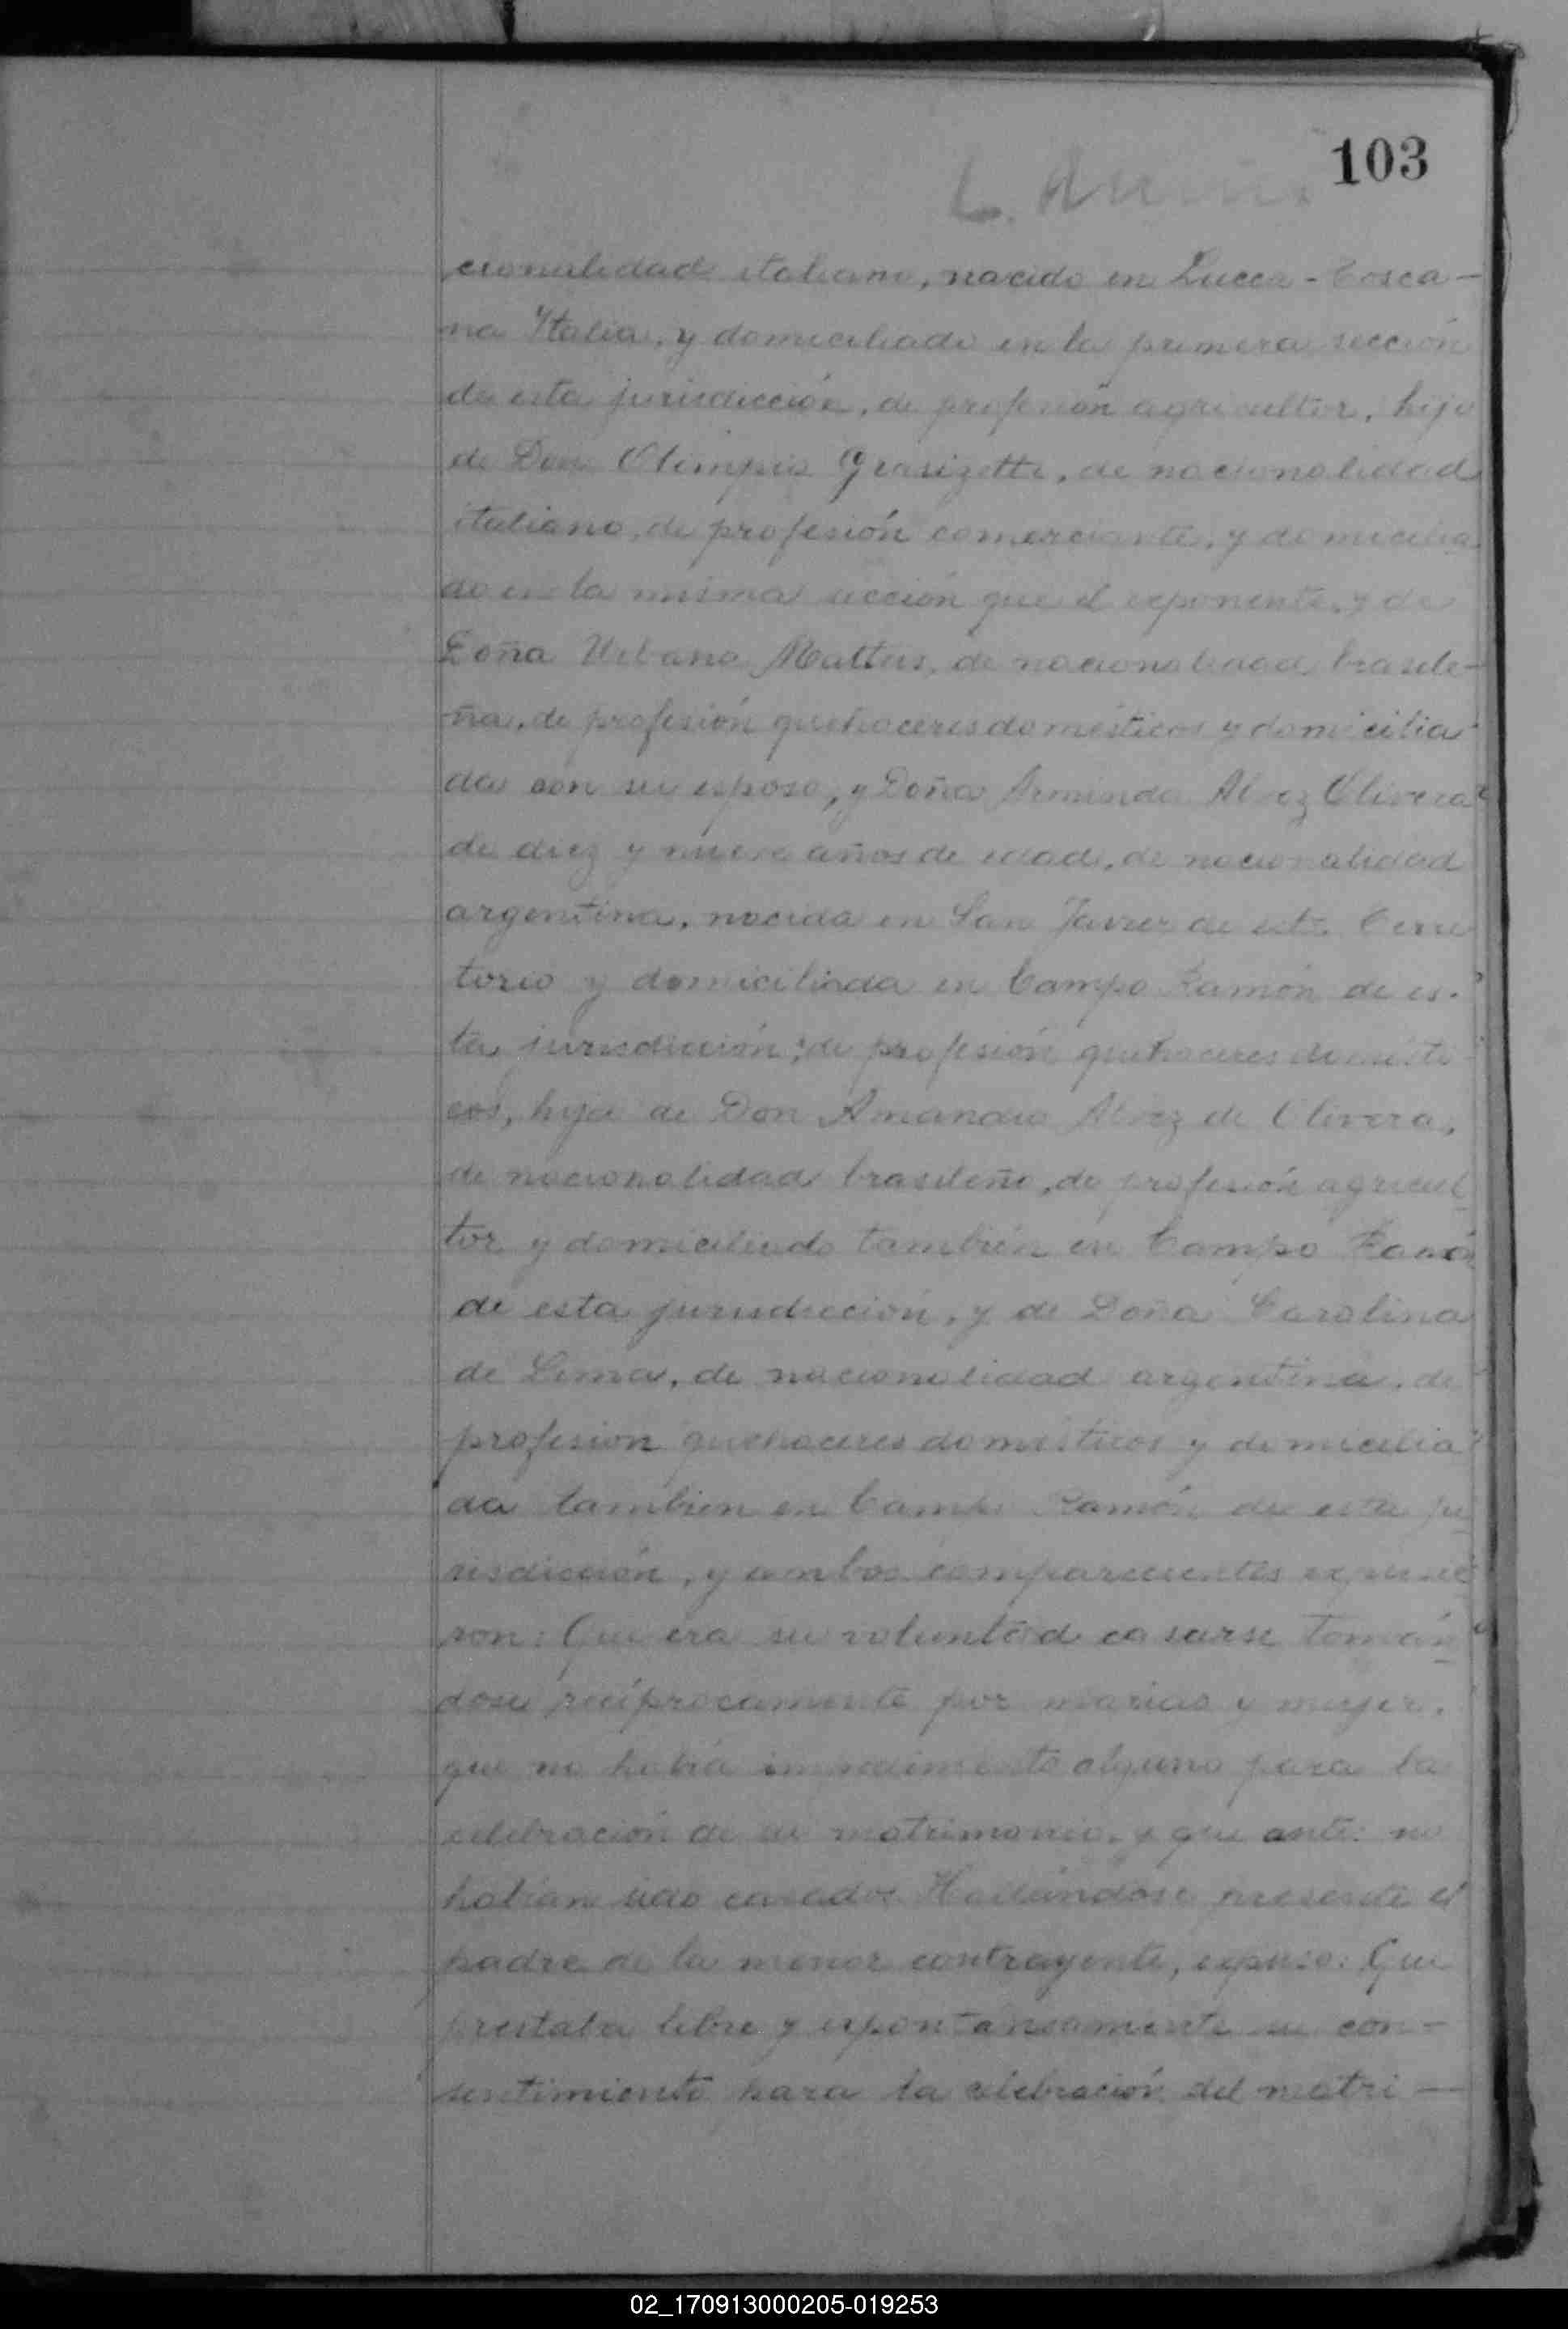 103
cionalidad italiano, nacido en Lucca - Tosca-
na Italia, y domiciliado en la primera sección
de esta jurisdicción, de profesión agricultor, hijo
de Don Olimpio Grasizetti, de nacionalidad
italiano, de profesión comerciante, y domicilia
do en la misma sección que el exponente, y de
Doña Urbana Mattus, de nacionalidad brasile-
ña, de profesión quehaceres domésticos y domicilia
da con su esposo, y Doña Arminda Alvez Olivera
de diez y nueve años de edad, de nacionalidad
argentina, nacida en San Javier de este Terri
torio y domiciliada en Campo Ramón de es-
ta jurisdicción, de profesión quehaceres domésti
cos, hija de Don Amandio Alvez de Olivera,
de nacionalidad brasileño, de profesión agricul
tor y domiciliado también en Campo Ramón
de esta jurisdicción, y de Doña Carolina
de Lima, de nacionalidad argentina, de
profesión quehaceres domésticos y domicilia
da también en Campo Ramón de esta ju
risdicción, y ambos comparecientes expusie
ron: Que era su voluntad casarse tomán
dose recíprocamente por marido y mujer,
que no había impedimento alguno para la
celebración de su matrimonio, y que antes no
habían sido casados. Hallándose presente el
padre de la menor contrayente, expuso: Que
prestaba libre y expontáneamente su con-
sentimiento para la celebración del matri-
02_170913000205-019253